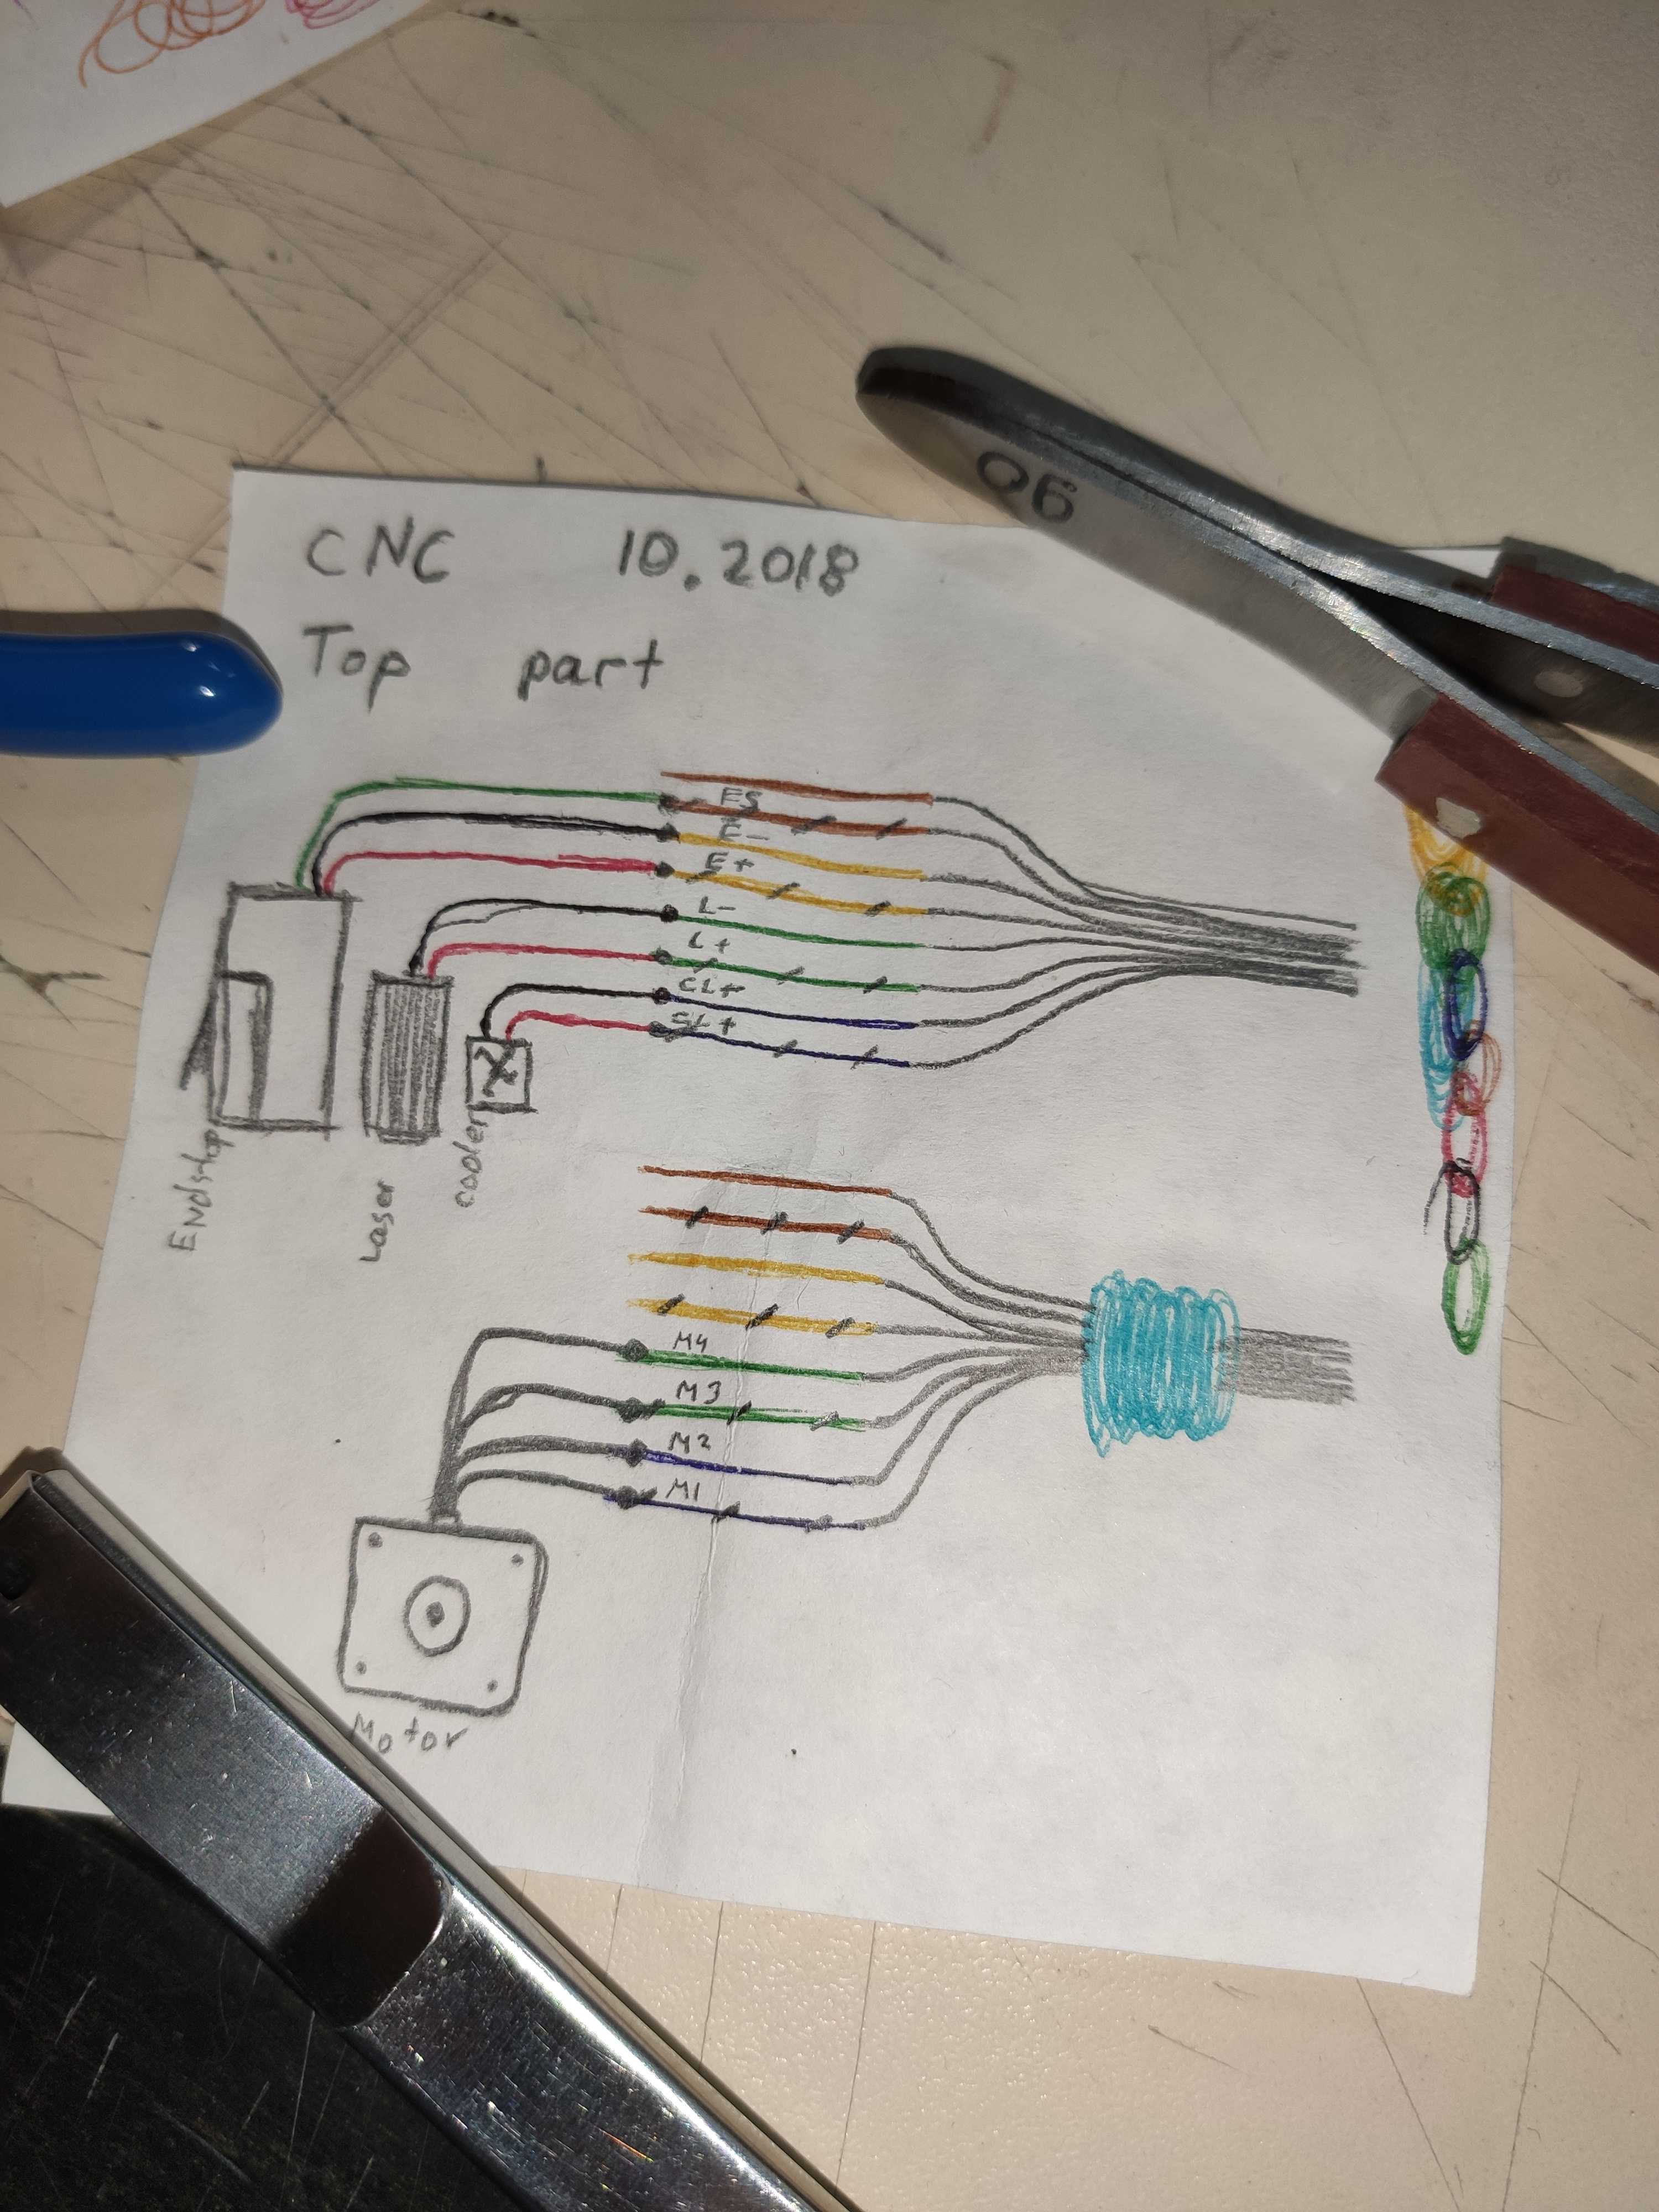 06
CNC 10.2018
Top part
ES
E-
E+
L-
L+
CL+
CL+
Endstop
Laser
cooler
M4
M3
M2
M1
Motor